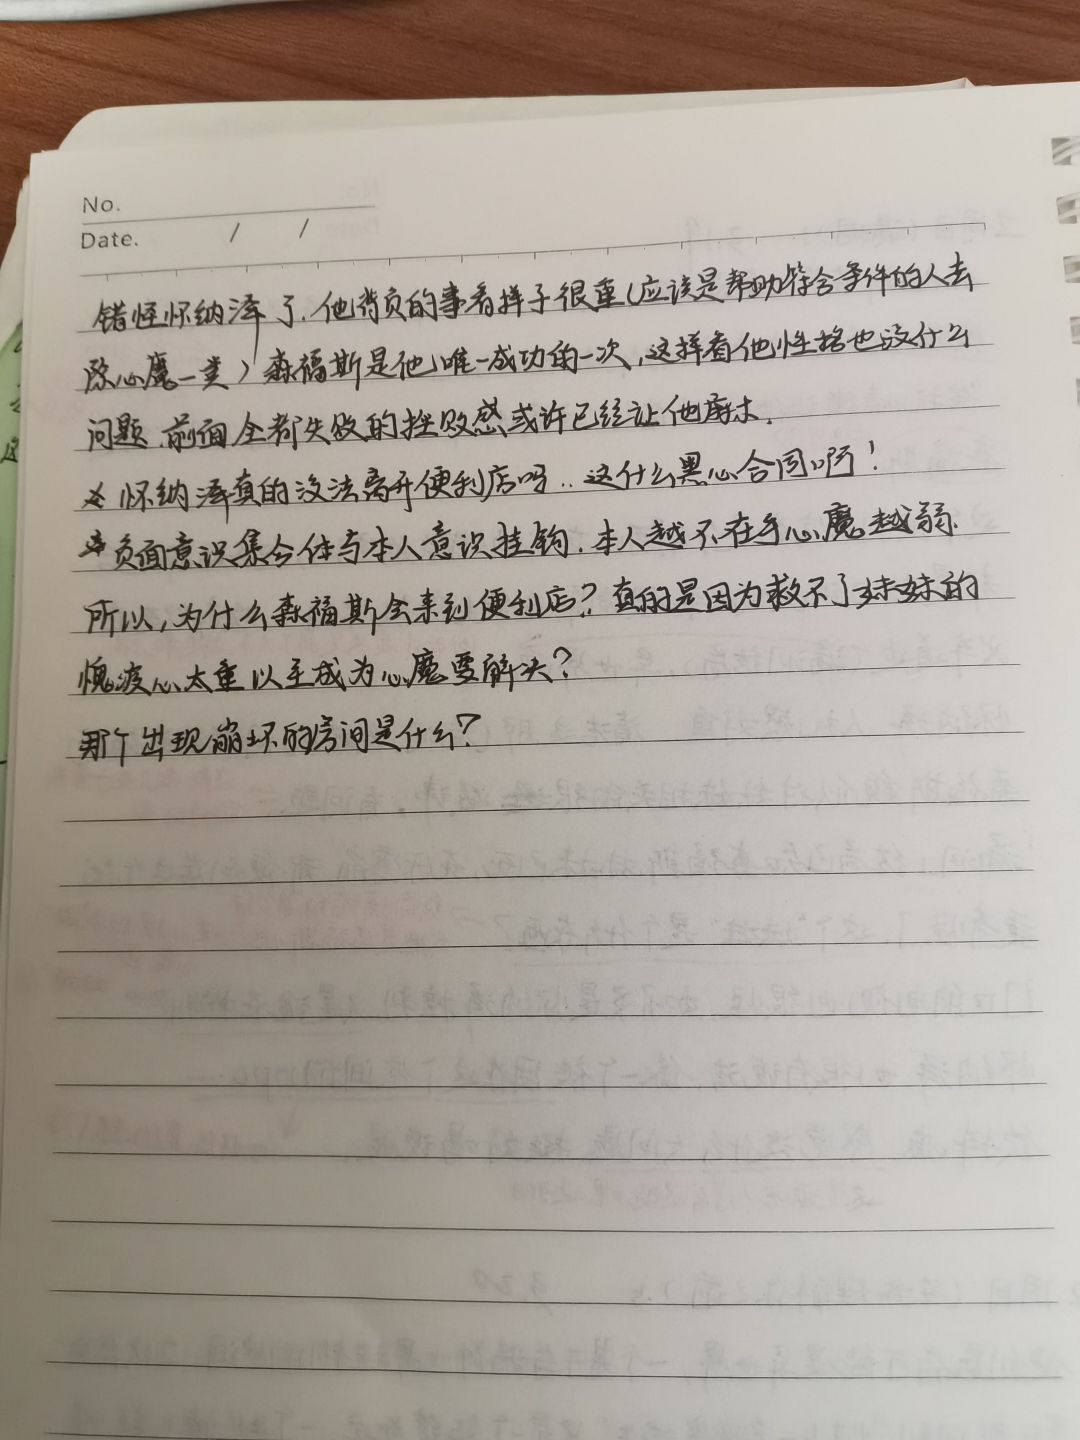 No.
Date. / /
错怪怀纳泽了.他背负的事看样子很重(应该是帮助符合条件的人去
除心魔一类)森福斯是他唯一成功的一次,这样看他性格也没什么
问题.前面全都失败的挫败感或许已经让他麻木.
怀纳泽真的没法离开便利店吗..这什么黑心合同啊!
负面意识集合体与本人意识挂钩.本人越不在乎心魔越弱.
所以,为什么森福斯会来到便利店?真的是因为救不了妹妹的
愧疚心太重以至成为心魔要解决?
那个出现崩坏的房间是什么?